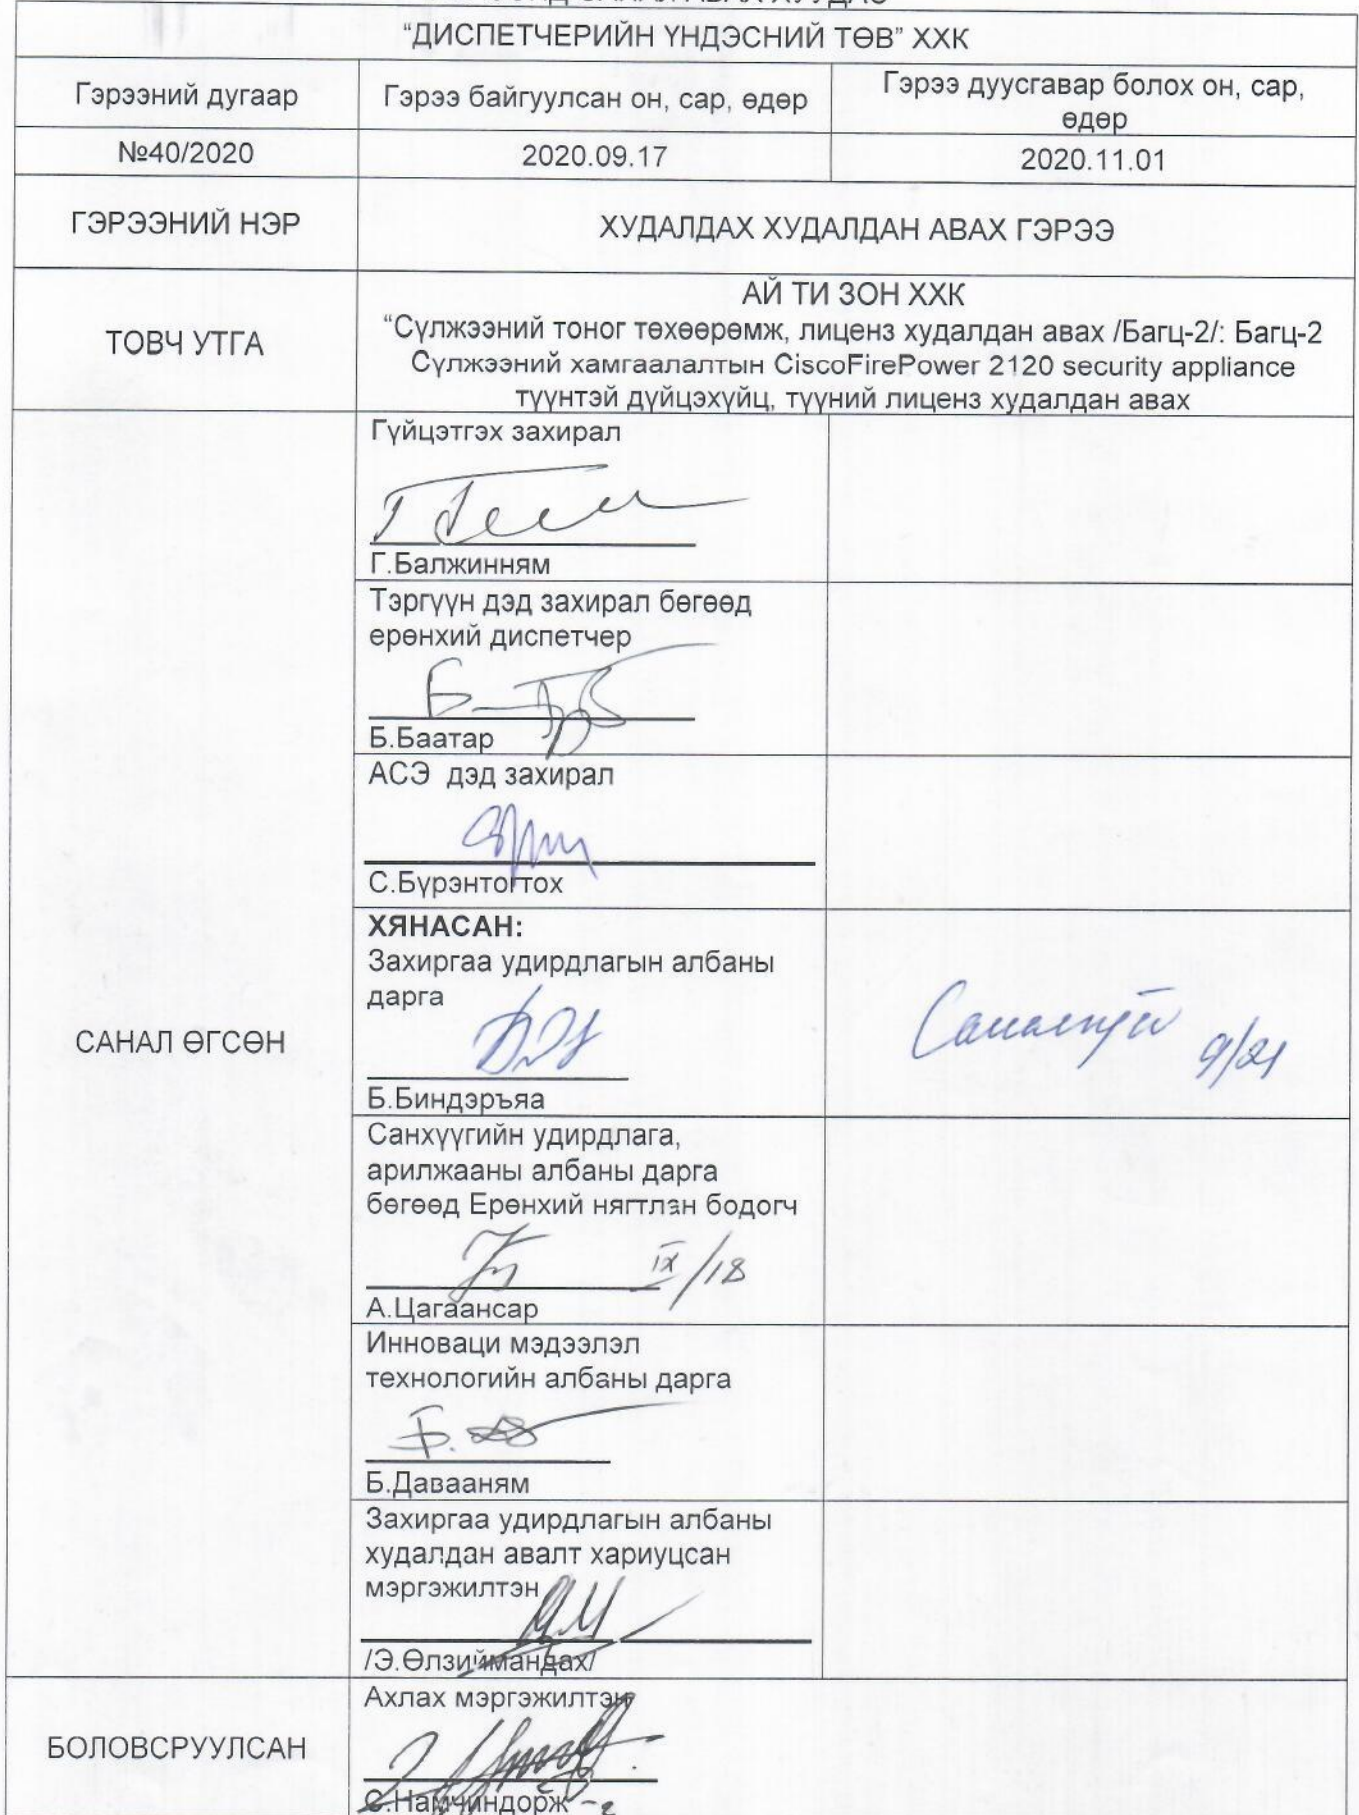 "ДИСПЕТЧЕРИЙН ҮНДЭСНИЙ ТӨВ" ХХК
Гэрээний дугаар
Гэрээ байгуулсан он, сар, өдөр
Гэрээ дуусгавар болох он, сар,
өдөр
№40/2020
2020.09.17
2020.11.01
ГЭРЭЭНИЙ НЭР
ХУДАЛДАХ ХУДАЛДАН АВАХ ГЭРЭЭ
ТОВЧ УТГА
АЙ ТИ ЗОН ХХК
"Сүлжээний тоног төхөөрөмж, лиценз худалдан авах /Багц-2/: Багц-2
Сүлжээний хамгаалалтын CiscoFirePower 2120 security appliance
түүнтэй дүйцэхүйц, түүний лиценз худалдан авах
САНАЛ ӨГСӨН
Гүйцэтгэх захирал
Г.Балжинням
Тэргүүн дэд захирал бөгөөд
ерөнхий диспетчер
Б.Баатар
АСЭ дэд захирал
С.Бүрэнтогтох
ХЯНАСАН:
Захиргаа удирдлагын албаны
дарга
Б.Биндэръяа
Саналгүй 9/21
Санхүүгийн удирдлага,
арилжааны албаны дарга
бөгөөд Ерөнхий нягтлан бодогч
IX/18
А.Цагаансар
Инноваци мэдээлэл
технологийн албаны дарга
Б.Даваaням
Захиргаа удирдлагын албаны
худалдан авалт хариуцсан
мэргэжилтэн
/Э.Өлзиймандах/
БОЛОВСРУУЛСАН
Ахлах мэргэжилтэн
С.Намчиндорж